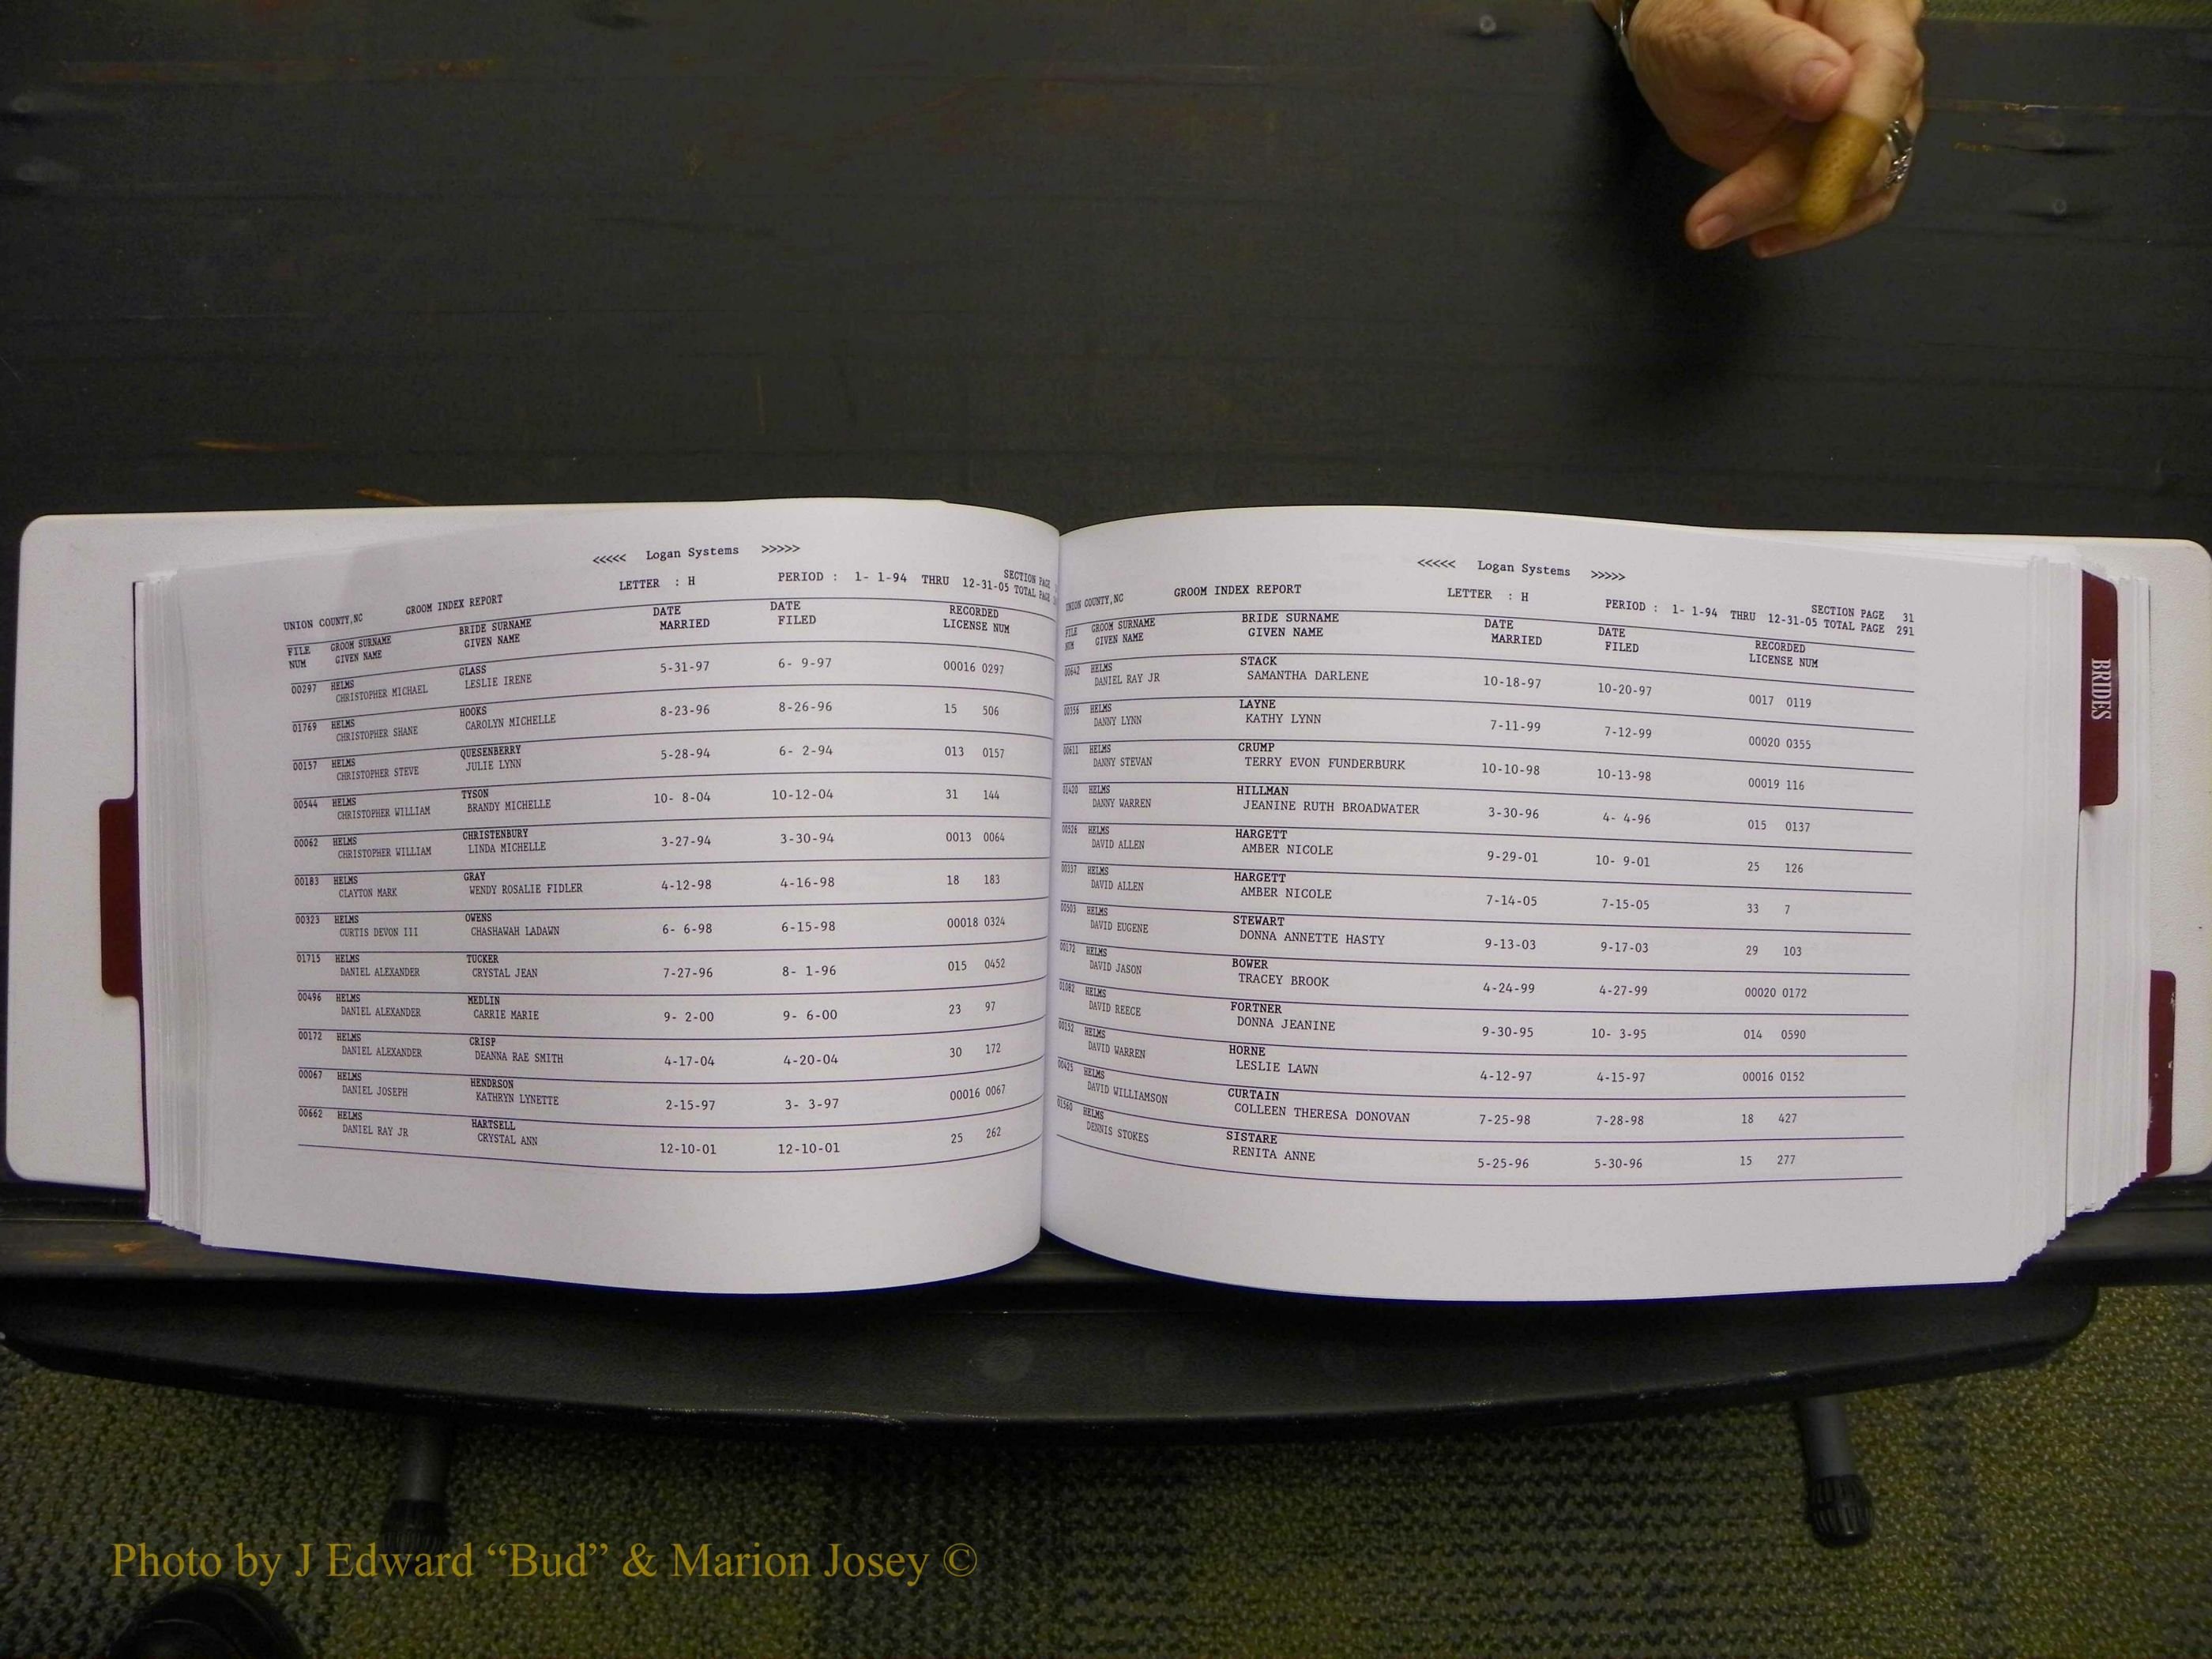 <<<<< Logan Systems >>>>>
UNION COUNTY,NC GROOM INDEX REPORT LETTER : H PERIOD : 1- 1-94 THRU 12-31-05 SECTION PAGE
TOTAL PAGE
FILE GROOM SURNAME BRIDE SURNAME DATE DATE RECORDED
NUM GIVEN NAME GIVEN NAME MARRIED FILED LICENSE NUM
00297 HELMS GLASS 5-31-97 6- 9-97 00016 0297
CHRISTOPHER MICHAEL LESLIE IRENE
01769 HELMS HOOKS 8-23-96 8-26-96 15 506
CHRISTOPHER SHANE CAROLYN MICHELLE
00157 HELMS QUESENBERRY 5-28-94 6- 2-94 013 0157
CHRISTOPHER STEVE JULIE LYNN
00544 HELMS TYSON 10- 8-04 10-12-04 31 144
CHRISTOPHER WILLIAM BRANDY MICHELLE
00062 HELMS CHRISTENBURY 3-27-94 3-30-94 0013 0064
CHRISTOPHER WILLIAM LINDA MICHELLE
00183 HELMS GRAY 4-12-98 4-16-98 18 183
CLAYTON MARK WENDY ROSALIE FIDLER
00323 HELMS OWENS 6- 6-98 6-15-98 00018 0324
CURTIS DEVON III CHASHAWAH LADAWN
01715 HELMS TUCKER 7-27-96 8- 1-96 015 0452
DANIEL ALEXANDER CRYSTAL JEAN
00496 HELMS MEDLIN 9- 2-00 9- 6-00 23 97
DANIEL ALEXANDER CARRIE MARIE
00172 HELMS CRISP 4-17-04 4-20-04 30 172
DANIEL ALEXANDER DEANNA RAE SMITH
00067 HELMS HENDRSON 2-15-97 3- 3-97 00016 0067
DANIEL JOSEPH KATHRYN LYNETTE
00662 HELMS HARTSELL 12-10-01 12-10-01 25 262
DANIEL RAY JR CRYSTAL ANN
<<<<< Logan Systems >>>>>
UNION COUNTY,NC GROOM INDEX REPORT LETTER : H PERIOD : 1- 1-94 THRU 12-31-05 SECTION PAGE 31
TOTAL PAGE 291
FILE GROOM SURNAME BRIDE SURNAME DATE DATE RECORDED
NUM GIVEN NAME GIVEN NAME MARRIED FILED LICENSE NUM
00642 HELMS STACK 10-18-97 10-20-97 0017 0119
DANIEL RAY JR SAMANTHA DARLENE
HELMS LAYNE 7-11-99 7-12-99 00020 0355
DANNY LYNN KATHY LYNN
00611 HELMS CRUMP 10-10-98 10-13-98 00019 116
DANNY STEVAN TERRY EVON FUNDERBURK
01420 HELMS HILLMAN 3-30-96 4- 4-96 015 0137
DANNY WARREN JEANINE RUTH BROADWATER
00526 HELMS HARGETT 9-29-01 10- 9-01 25 126
DAVID ALLEN AMBER NICOLE
00337 HELMS HARGETT 7-14-05 7-15-05 33 7
DAVID ALLEN AMBER NICOLE
00503 HELMS STEWART 9-13-03 9-17-03 29 103
DAVID EUGENE DONNA ANNETTE HASTY
00172 HELMS BOWER 4-24-99 4-27-99 00020 0172
DAVID JASON TRACEY BROOK
01082 HELMS FORTNER 9-30-95 10- 3-95 014 0590
DAVID REECE DONNA JEANINE
00152 HELMS HORNE 4-12-97 4-15-97 00016 0152
DAVID WARREN LESLIE LAWN
00425 HELMS CURTAIN 7-25-98 7-28-98 18 427
DAVID WILLIAMSON COLLEEN THERESA DONOVAN
01560 HELMS SISTARE 5-25-96 5-30-96 15 277
DENNIS STOKES RENITA ANNE
BRIDES
Photo by J Edward “Bud” & Marion Josey ©